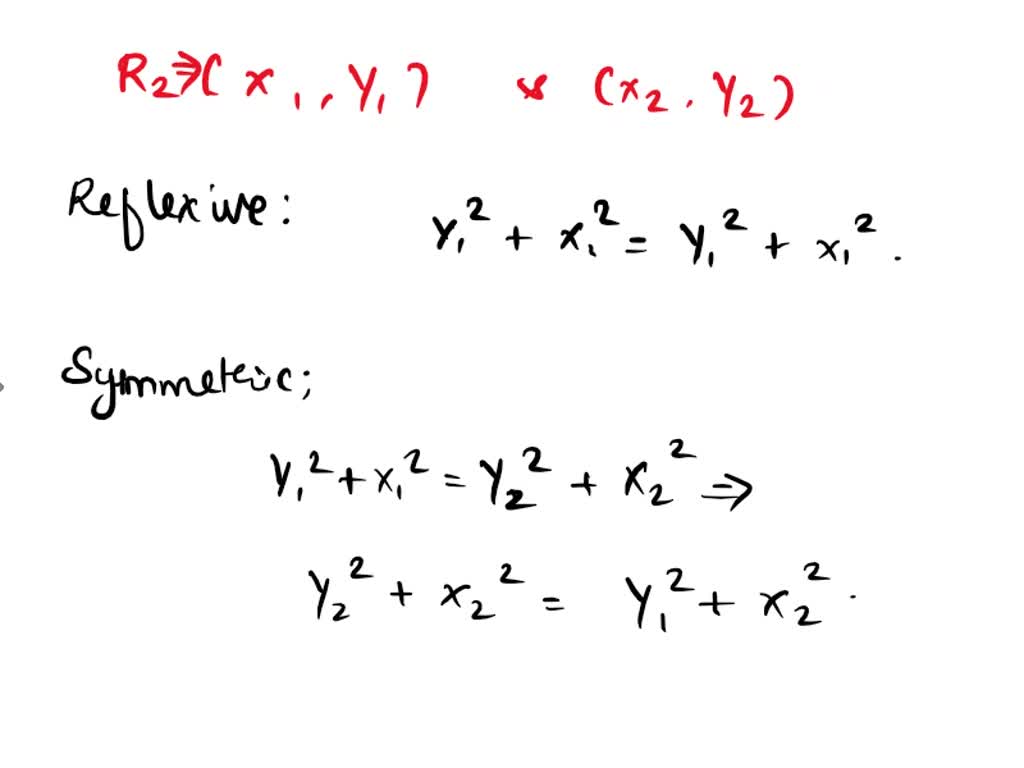 R₂⇒(x₁, y₁) & (x₂, y₂)
Reflexive: y₁² + x₁² = y₁² + x₁².
Symmetric;
y₁² + x₁² = y₂² + x₂² ⇒
y₂² + x₂² = y₁² + x₂².